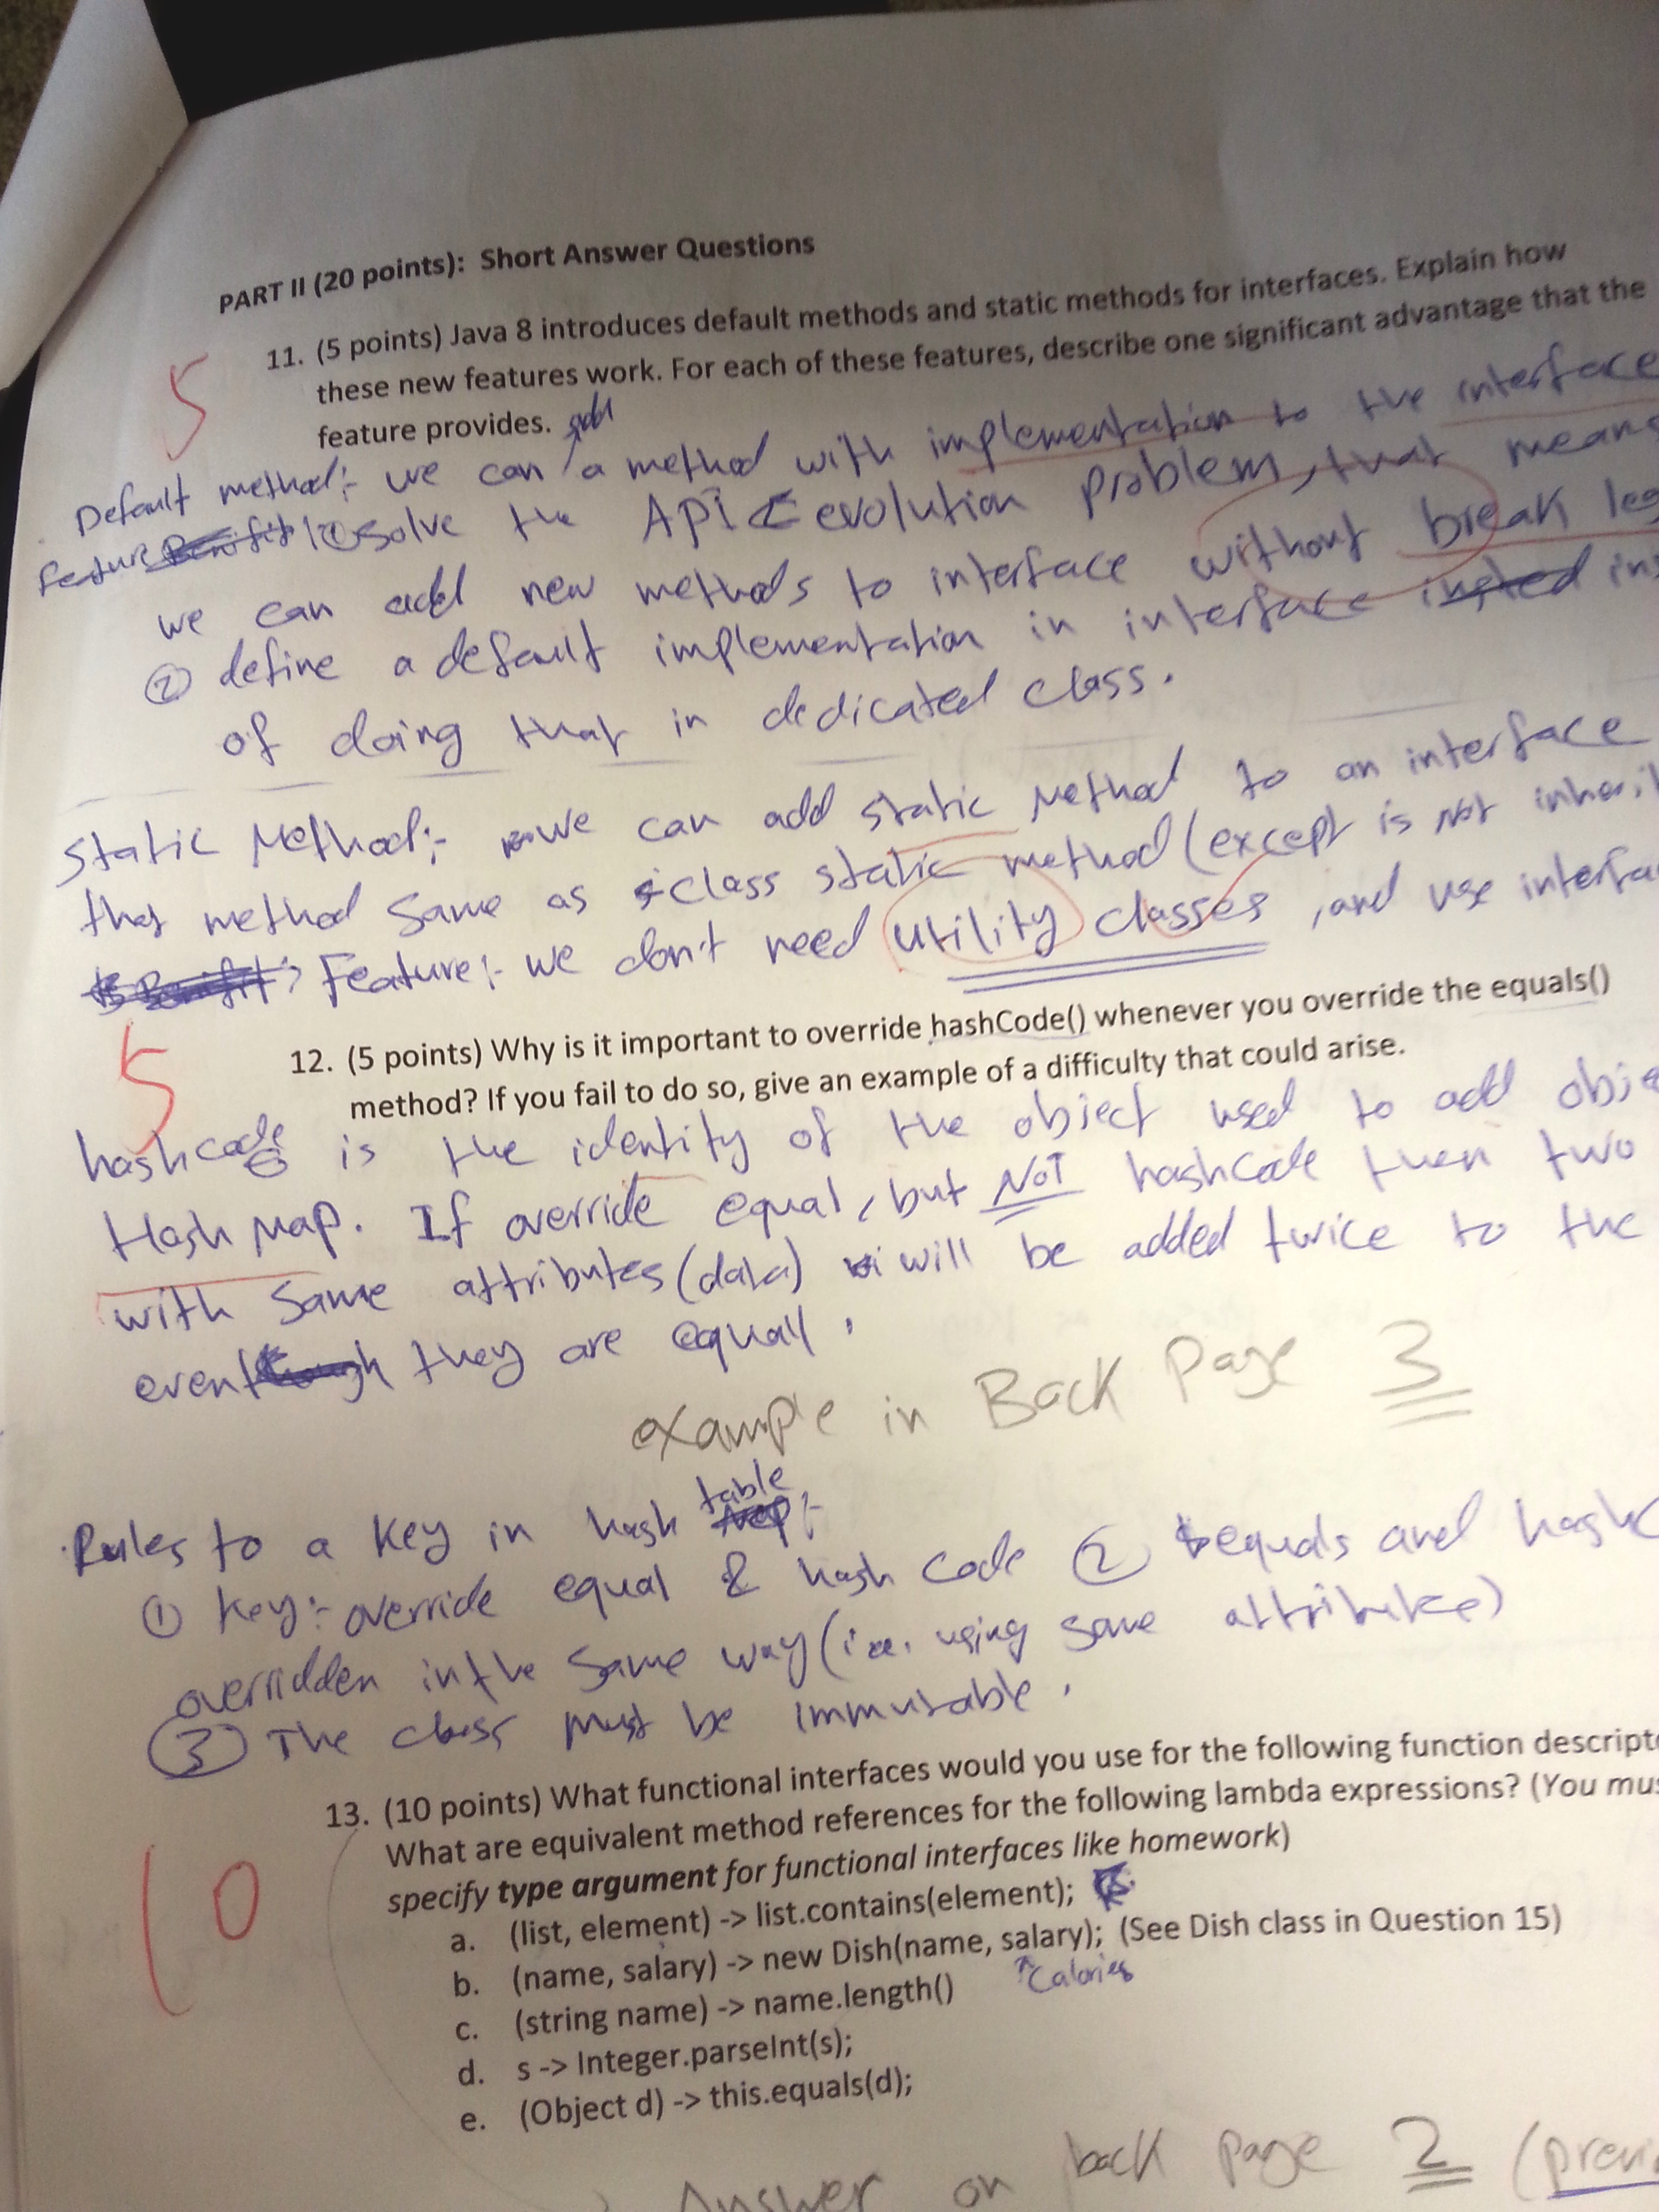 PART II (20 points): Short Answer Questions
5
11. (5 points) Java 8 introduces default methods and static methods for interfaces. Explain how
these new features work. For each of these features, describe one significant advantage that the
feature provides.
add
Default method:- we can a method with implementation to the interface
Feature ① solve the API evolution problem, that means
we can add new methods to interface without break leg
② define a default implementation in interface ins
of doing that in dedicated class.
Static Method:- we can add static Method to an interface
that method same as class static method (except is not inherit
Feature:- we don't need utility classes, and use interfa
5
12. (5 points) Why is it important to override hashCode() whenever you override the equals()
method? If you fail to do so, give an example of a difficulty that could arise.
hashcode is the identity of the object used to add obje
Hash Map. If override equal, but NOT hashCode then two
with same attributes (data) will be added twice to the
even they are equall.
example in Back Page 3
table
Rules to a key in hash :-
① key:- override equal & hash code ② equals and hashC
overridden in the same way (i.e. using same attribute)
③ The class must be immutable.
10
13. (10 points) What functional interfaces would you use for the following function descripto
What are equivalent method references for the following lambda expressions? (You mus
specify type argument for functional interfaces like homework)
a. (list, element) -> list.contains(element);
b. (name, salary) -> new Dish(name, salary); (See Dish class in Question 15)
Calories
c. (string name) -> name.length()
d. s -> Integer.parseInt(s);
e. (Object d) -> this.equals(d);
Answer on back page 2 (previ